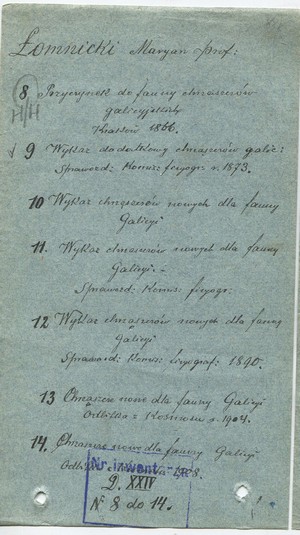 Łomnicki Maryan prof:
8 Przyczynek do fauny chrząszczów
H/H galicyjskich
Kraków 1866.
9 Wykaz dodatkowy chrząszczów galic:
Sprawozd: Komis: fizyogr: r. 1873.
10 Wykaz chrząszczów nowych dla fauny
Galicyi
11. Wykaz chrząszczów nowych dla fauny
Galicyi.-
Sprawozd: Komis: fizyogr:
12 Wykaz chrząszczów nowych dla fauny
Galicyi
Sprawozd: Komis: fizyograf: 1890.
13 Chrząszcze nowe dla fauny Galicyi
Odbitka z Kosmosu r. 1904.
14. Chrząszcze nowe dla fauny Galicyi
Odbitka
Nr. inwenta
2. XXIV
N 8 do 14.